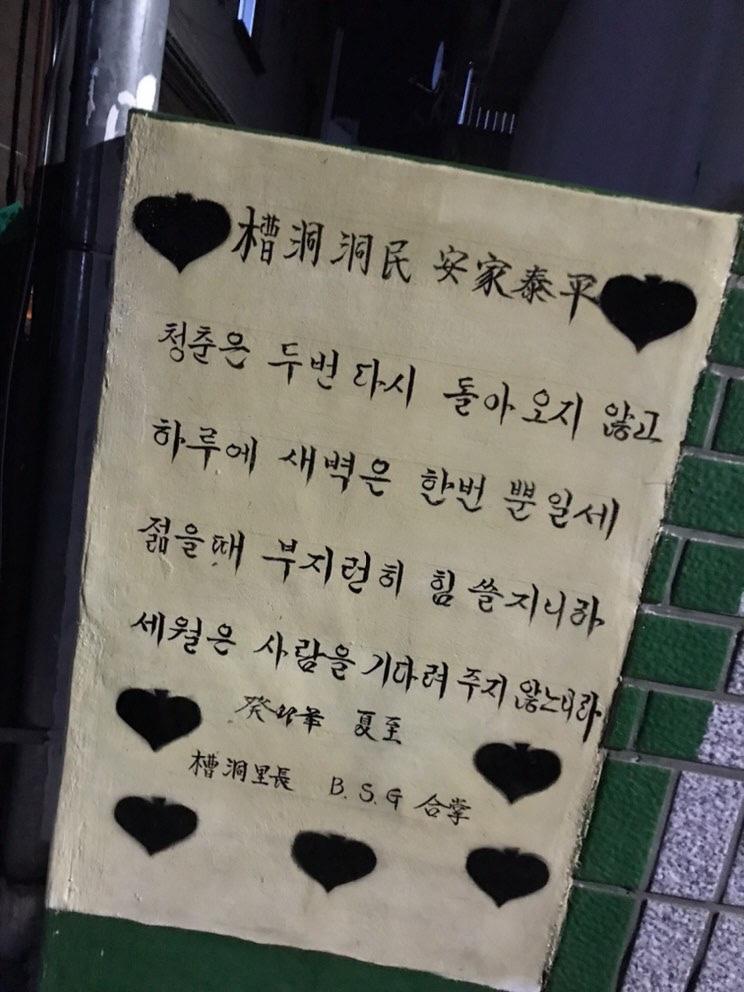 槽洞洞民 安家泰平
청춘은 두번 다시 돌아오지 않고
하루에 새벽은 한번 뿐일세
젊을때 부지런히 힘 쓸지니라
세월은 사람을 기다려 주지 않느니라
癸卯 夏至
槽洞里長 B.S.G 合掌